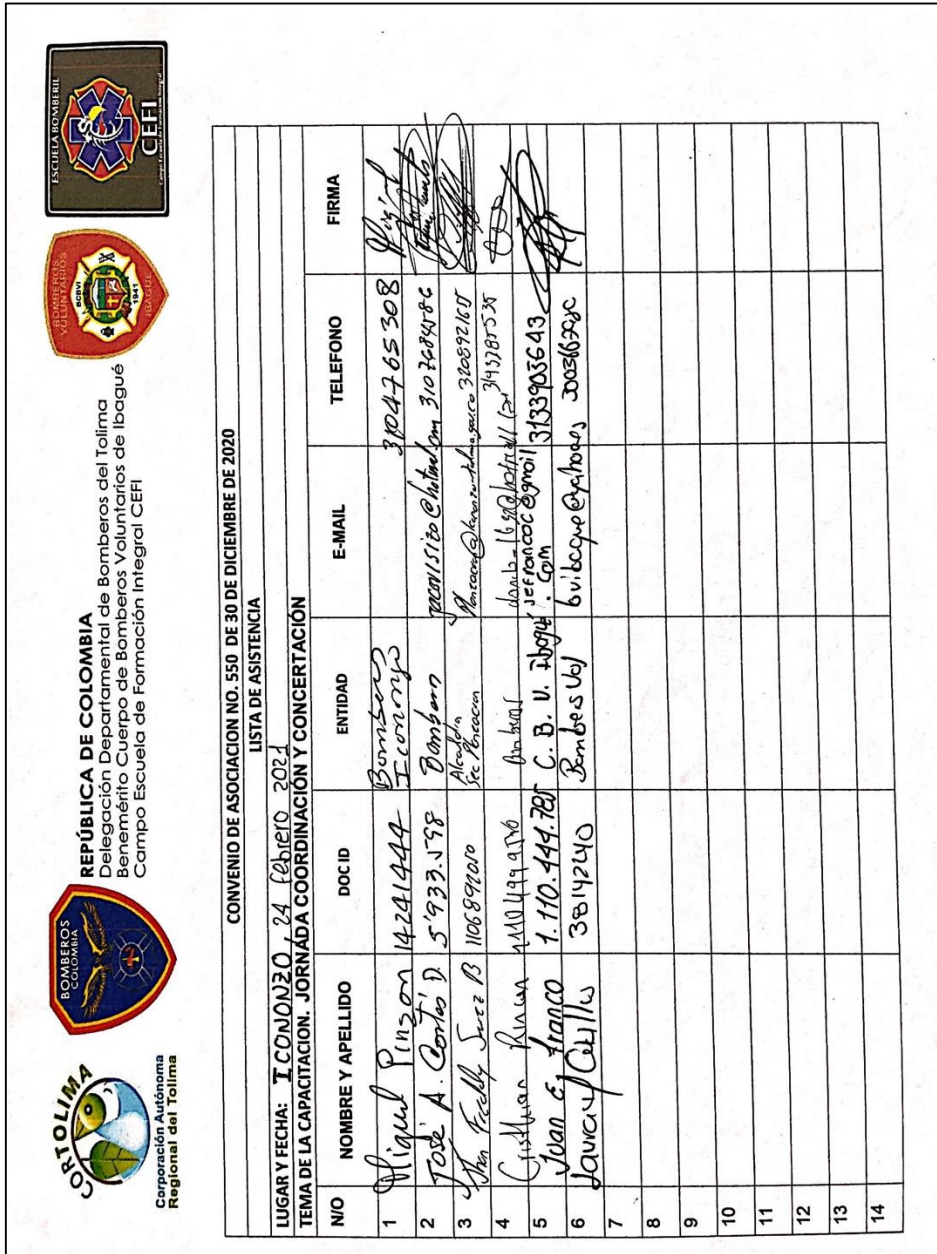 CORTOLIMA
Corporación Autónoma
Regional del Tolima
BOMBEROS
COLOMBIA
REPÚBLICA DE COLOMBIA
Delegación Departamental de Bomberos del Tolima
Benemérito Cuerpo de Bomberos Voluntarios de Ibagué
Campo Escuela de Formación Integral CEFI
BOMBEROS
VOLUNTARIOS
BCBVI
1941
IBAGUÉ
ESCUELA BOMBERIL
CEFI
Campo Escuela de Formación Integral
CONVENIO DE ASOCIACION NO. 550 DE 30 DE DICIEMBRE DE 2020
LISTA DE ASISTENCIA
LUGAR Y FECHA: ICONONZO, 24 febrero 2021
TEMA DE LA CAPACITACION. JORNADA COORDINACIÓN Y CONCERTACIÓN
N/O NOMBRE Y APELLIDO DOC ID ENTIDAD E-MAIL TELEFONO FIRMA
1 Miguel Pinzon 14241444 Bomberos Icononzo 3104765308
2 José A. Cortés D. 5'933.598 Bombero
3 Freddy 1106892010 Alcaldia Sec Planeacion 3208921615
4 Cristhian Rincon
5 Juan E. Franco C. B. V. Ibagué jeffranco @gmail.com 3133903643
6 Laura 38142240 Bomberos Vol
7
8
9
10
11
12
13
14